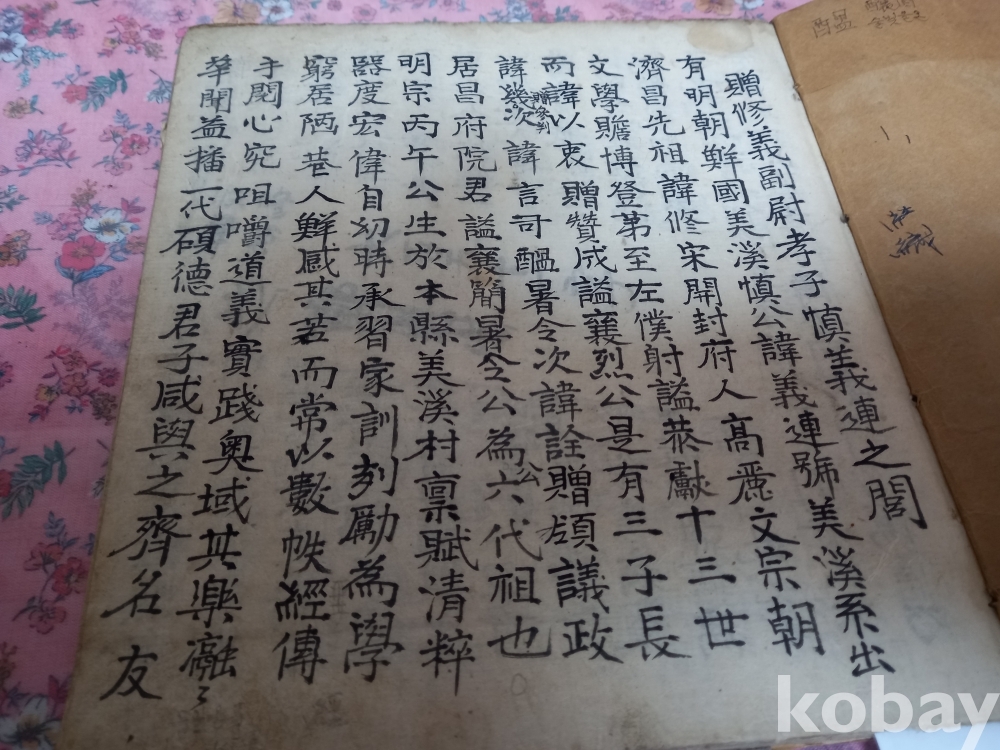 贈修義副尉孝子愼義連之閭
有明朝鮮國美溪愼公諱義連號美溪系出
濟昌先祖諱修宋開封府人高麗文宗朝
文學贍博登第至左僕射謚恭獻十三世
而諱以衷贈贊成謚襄烈公是有三子長
諱幾次諱言哥醞署令次諱詮贈領議政
居昌府院君謚襄簡署令公爲公六代祖也
明宗丙午公生於本縣美溪村稟賦清粹
器度宏偉自幼時承習家訓刻勵爲學
窮居陋巷人鮮慼其若而常以數帙經傳
手閱心究咀嚼道義實踐奧域其樂瀜〻
華聞益播一代碩德君子咸與之齊名友
kobay